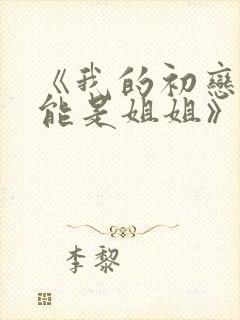 《我的初戀
能是姐姐》
李黎